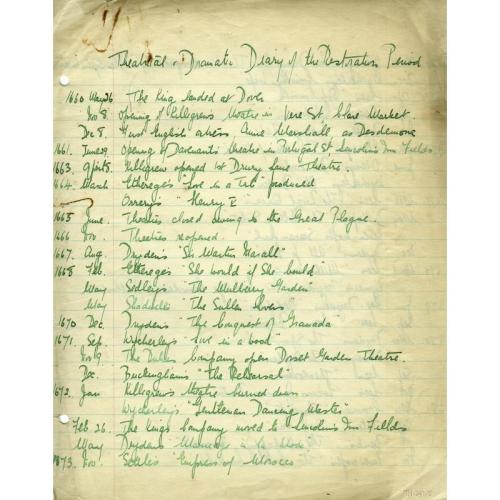 Theatrical & Dramatic Diary of the Restoration Period
1660 May 26 The King landed at Dover
Nov 8. Opening of Killegrew's theatre in Vere St. Clare Market.
Dec 8. First English actress, Anne Marshall, as Desdemona
1661. June 29. Opening of Davenant's theatre in Portugal St Lincoln's Inn Fields
1663. April 8. Killegrew opened 1st Drury Lane Theatre.
1664. March Etherege's "Love in a Tub" produced
Orrery's "Henry V"
1665 June. Theatres closed owing to the Great Plague.
1666 Nov. Theatres reopened.
1667. Aug. Dryden's "Sir Martin Marall"
1668 Feb. Etherege's "She would if She Could"
May Sedley's "The Mulberry Garden"
May Shadwell's "The Sullen Lovers
1670 Dec. Dryden's "The Conquest of Granada"
1671. Sep. Wycherley's "Love in a Wood"
Nov 9. The Duke's Company open Dorset Garden Theatre.
Dec. Buckingham's "The Rehearsal"
1672. Jan Killegrew's theatre burned down
Wycherley's "Gentleman Dancing Master"
Feb 26. The King's Company moved to Lincoln's Inn Fields
May Dryden's "Marriage a la Mode"
1673. Nov. Settle's "Empress of Morocco